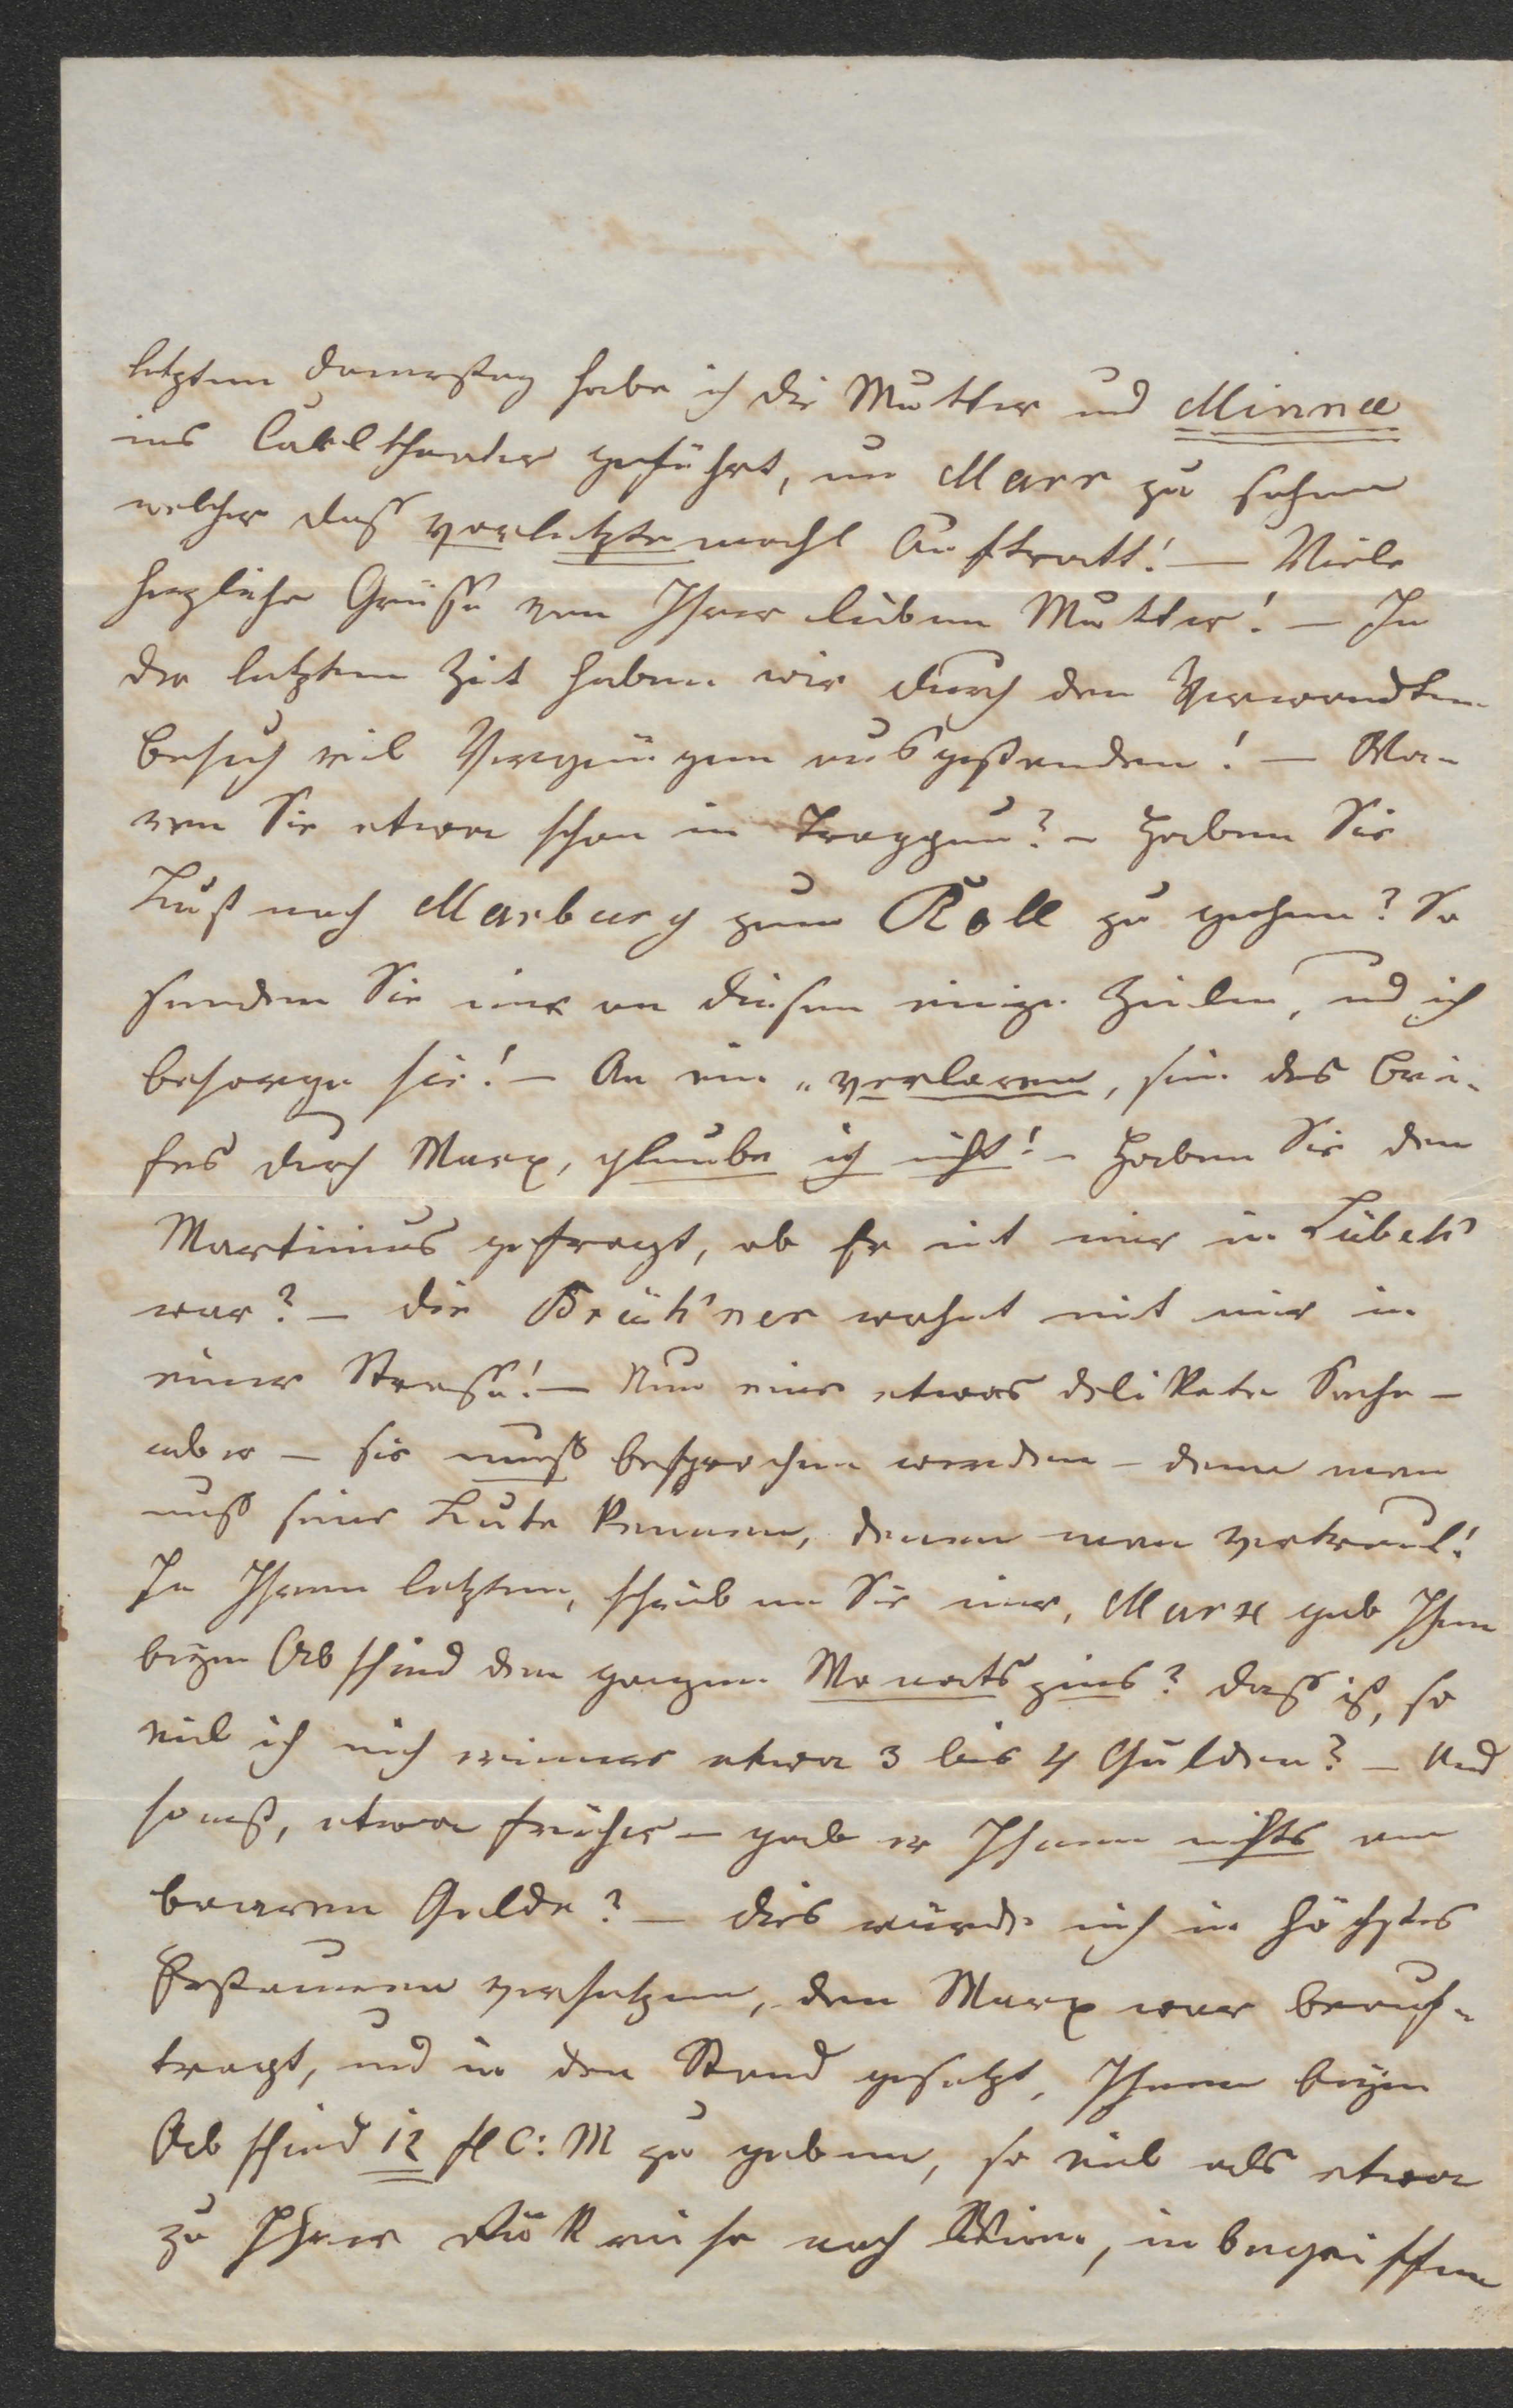 letzten Donnerstag habe ich die Mutter und Minna
ins Carltheater geführt, um Marr zu sehen
welcher daß vorletzte mahl Auftratt! — Viele
herzliche Grüße von Ihrer lieben Mutter! — In
der letzten Zeit haben wir durch den Verwandten-
besuch viel Vergnügen ausgestanden! — Wa-
ren Sie etwa schon in Traggun? — Haben Sie
Lust nach Marburg zum Roll zu gehen? So
senden Sie mir an diesen einige Zeilen, und ich
besorge sie! — An ein „verloren, sein des Brie-
fes durch Marx, glaube ich nicht! — Haben Sie den
Martinius gefragt, ob Er mit mir in Lübek
war? — Die Brükner wohnt mit mir in
einer Strasse! — Nun eine etwas delikate Sache —
aber — sie muß besprochen werden — denn man
muß seine Leute kennen, denen man vertraut!
In Ihrem letzten, schrieben Sie mir, Marx gab Ihnen
beym Abschied den ganzen Monatszins? daß ist, so
viel ich mich erinnere etwa 3 bis 4 Gulden? — Und
sonst, etwa früher — gab er Ihnen nichts an
baaren Gelde? — Dies würde mich in höchstes
Erstaunen versetzen, den Marx war beauf-
tragt, und in den Stand gesetzt, Ihnen beym
Abschied 12 fl C: M zu geben, so viel als etwa
zu Ihrer Rükreise nach Wien, inbegriffen